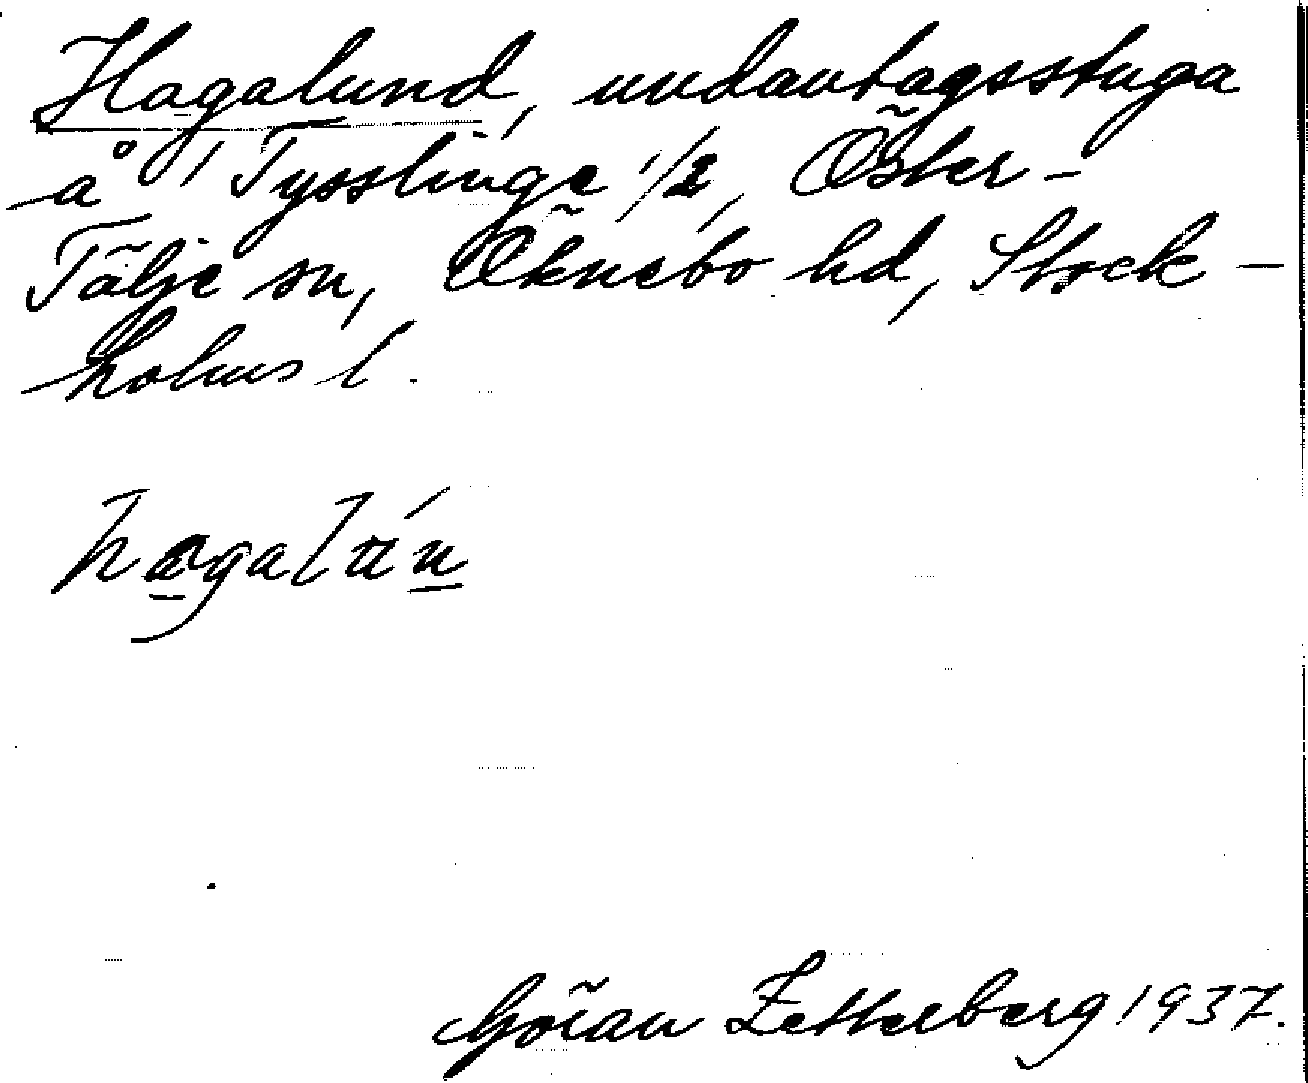 Hagalund, undantagsstuga
å Tysslinge 1/2, Öster-
Tälje sn, Öknebo hd, Stock-
holms l.
Göran Zetterberg 1937.